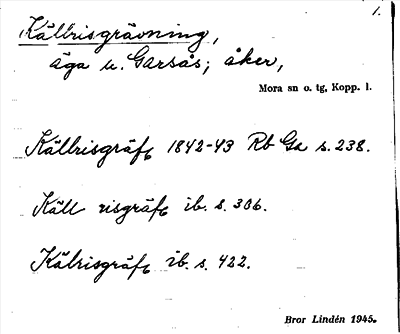 1.
Källrisgrävning,
äga u. Garsås; åker,
Mora sn o. tg, Kopp. l.
Källrisgräfv 1842-43 Rb Ga s. 238.
Käll risgräfv ib. s. 306.
Kälrisgräfv ib. s. 422.
Bror Lindén 1945.